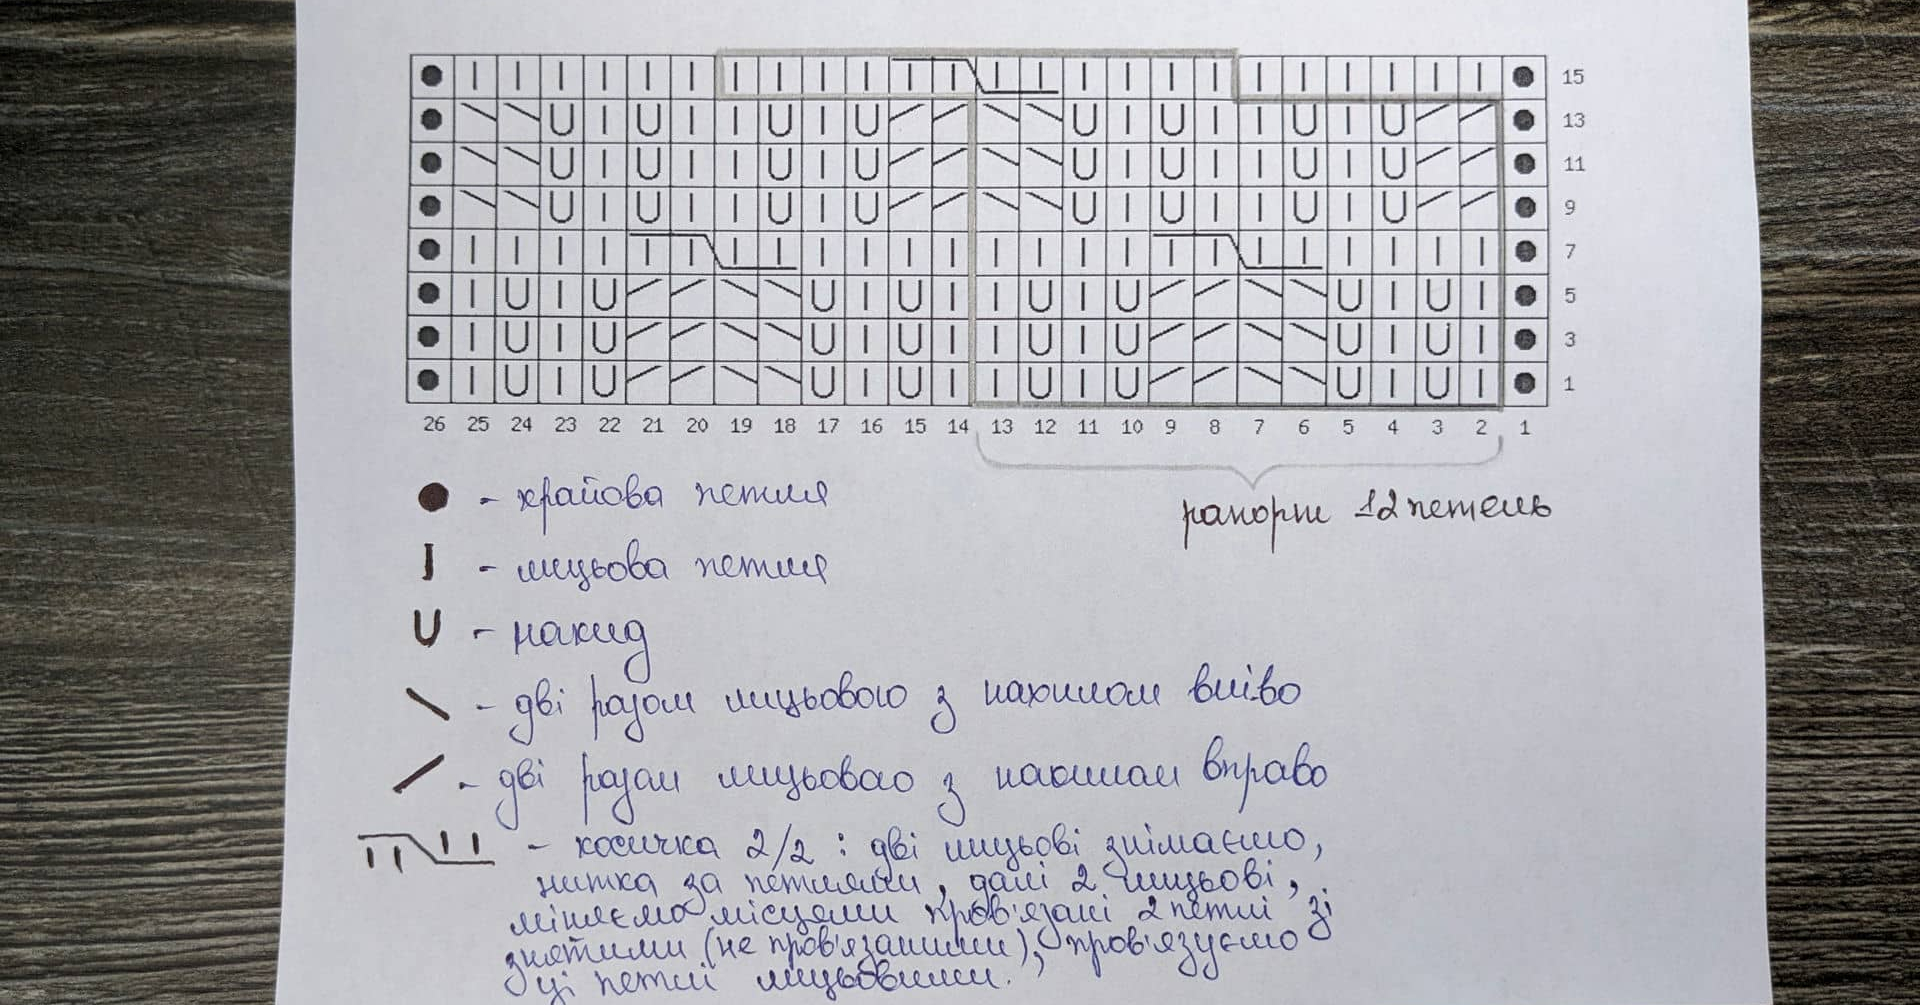 15
13
11
9
7
5
3
1
26 25 24 23 22 21 20 19 18 17 16 15 14 13 12 11 10 9 8 7 6 5 4 3 2 1
рапорт 12 петель
- крайова петля
- лицьова петля
- накид
- дві разом лицьовою з нахилом вліво
- дві разом лицьовою з нахилом вправо
- косичка 2/2 : дві лицьові знімаємо,
нитка за петлями, далі 2 лицьові,
міняємо місцями пров'язані 2 петлі зі
знятими (не пров'язаними), пров'язуємо
ці петлі лицьовими.